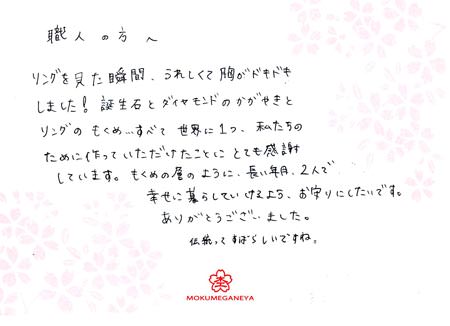 職人の方へ
リングを見た瞬間、うれしくて胸がドキドキ
しました！誕生石とダイヤモンドのかがやきと
リングのもくめ…すべて世界に1つ、私たちの
ために作っていただけたことにとても感謝
しています。もくめの層のように、長い年月、2人で
幸せに暮らしていけるよう、お守りにしたいです。
ありがとうございました。
伝統ってすばらしいですね。
MOKUMEGANEYA